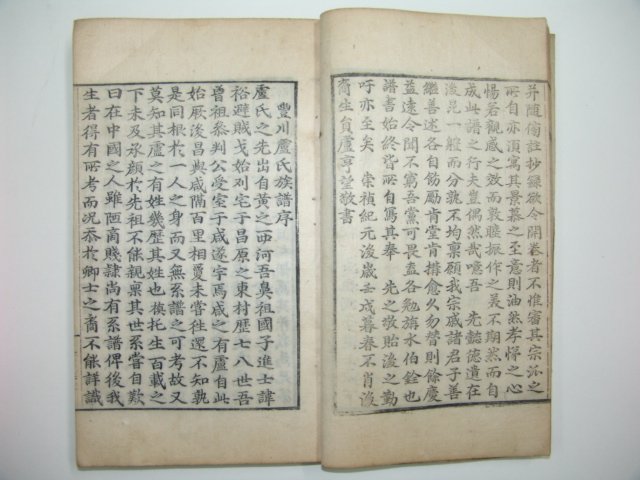 并随傷註抄録欲令開卷者不惟審其宗派之
所自亦須寓其景慕之至意則油然孝悌之心
惕若觀感之效而敦睦振作之美不期然而自
成此譜之行夫豈偶然哉噫吾先懿德遺在
後昆一體而分孰不均禀顧我宗戚諸君子善
繼善述各自飭勵肯堂肯構愈久勿替則餘慶
益遠令聞不窮吾黨可畏盍各勉旃水伯銓也
譜書始終皆所自寫其奉先之敬貽後之勤
吁亦至矣崇禎紀元後歲壬戌暮春不肖後
裔生員盧亨望敬書
豐川盧氏族譜序
盧氏之先出自黃之西河吾鼻祖國子進士諱
裕避賊戈始列宅于昌原之東村歷七八世吾
曾祖叅判公受室于咸遂宇焉咸之有盧自此
始厥後昌與咸隔百里相躉未嘗往還不知孰
是同根於一人之身而又無系譜之可考故又
莫知其盧之有姓幾歷其姓也㨾托生百載之
下未及承顔於先祖不能親禀其世系嘗自歎
曰在中國之人雖陋商賤隷尚有系譜俾後我
生者得有所考而况忝於卿士之裔不能詳識